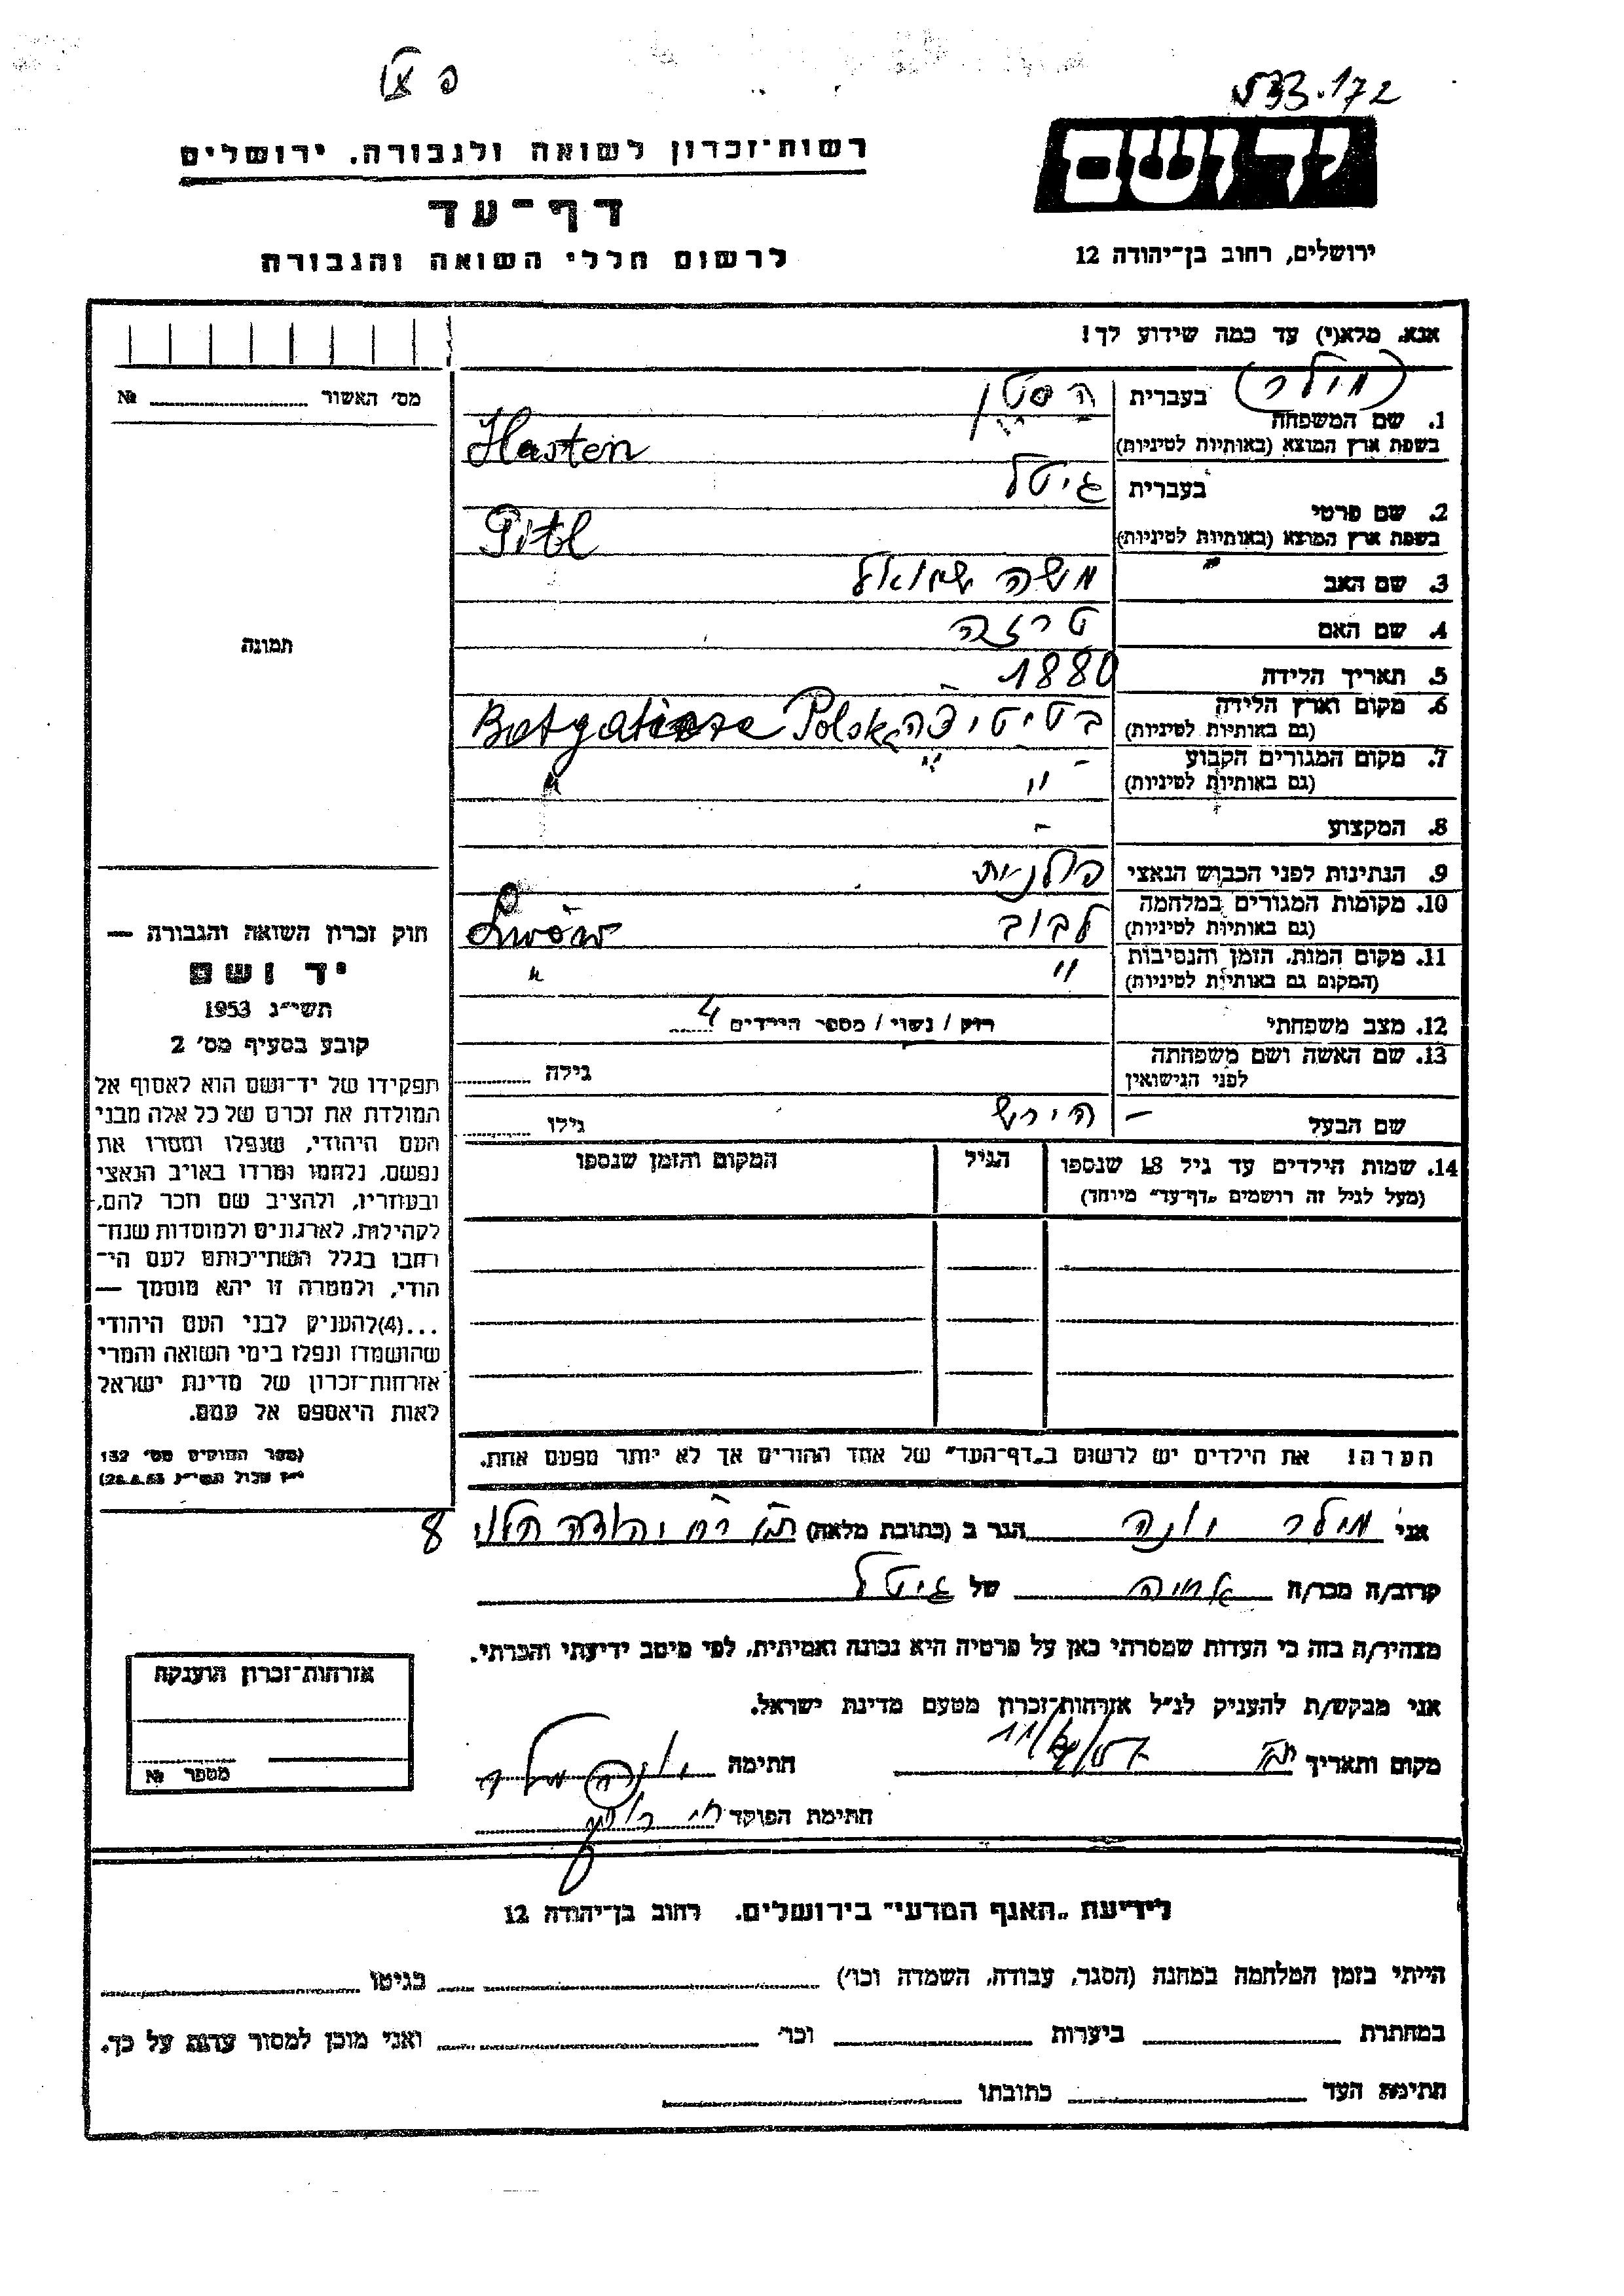 533.172
יד ושם
ירושלים, רחוב בן־יהודה 12
רשות־זכרון לשואה ולגבורה, ירושלים
דף־עד
לרשום חללי השואה והגבורה
אנא, מלא(י) עד כמה שידוע לך!
1. שם המשפחה (מילר) בעברית הסטן
בשפת ארץ המוצא (באותיות לטיניות) Hasten
2. שם פרטי בעברית גיטל
בשפת ארץ המוצא (באותיות לטיניות) Gitl
3. שם האב משה שמואל
4. שם האם טרזה
5. תאריך הלידה 1880
6. מקום וארץ הלידה
(גם באותיות לטיניות) Polska
7. מקום המגורים הקבוע
(גם באותיות לטיניות) - " "
8. המקצוע -
9. הנתינות לפני הכבוש הנאצי פולנית
10. מקומות המגורים במלחמה
(גם באותיות לטיניות) לבוב Lwów
11. מקום המות, הזמן והנסיבות
(המקום גם באותיות לטיניות) " "
12. מצב משפחתי רווק / נשוי / מספר הילדים 4
13. שם האשה ושם משפחתה
לפני הנישואין גילה
שם הבעל - הירש גילו
14. שמות הילדים עד גיל 18 שנספו הגיל המקום והזמן שנספו
(מעל לגיל זה רושמים „דף־עד" מיוחד)
הערה! את הילדים יש לרשום ב„דף־העד" של אחד ההורים אך לא יותר מפעם אחת.
מס׳ האשור №
תמונה
חוק זכרון השואה והגבורה —
יד ושם
תשי״ג 1953
קובע בסעיף מס׳ 2
תפקידו של יד־ושם הוא לאסוף אל
המולדת את זכרם של כל אלה מבני
העם היהודי, שנפלו ומסרו את
נפשם, נלחמו ומרדו באויב הנאצי
ובעוזריו, ולהציב שם וזכר להם,
לקהילות, לארגונים ולמוסדות שנח־
רבו בגלל השתייכותם לעם הי־
הודי, ולמטרה זו יהא מוסמך —
...(4)להעניק לבני העם היהודי
שהושמדו ונפלו בימי השואה והמרי
אזרחות־זכרון של מדינת ישראל
לאות היאספם אל עמם.
(ספר החוקים מס׳ 132
י״ז אלול תשי״ג 28.8.53)
אני מילר יונה הגר ב (כתובת מלאה) ת״א רח׳ יהודה הלוי 8
קרוב/ה מכר/ה של גיטל
מצהיר/ה בזה כי העדות שמסרתי כאן על פרטיה היא נכונה ואמיתית, לפי מיטב ידיעתי והכרתי.
אני מבקש/ת להעניק לנ״ל אזרחות־זכרון מטעם מדינת ישראל.
מקום ותאריך ת״א חתימה יונה מילר
חתימת הפוקד
אזרחות־זכרון הוענקה
מספר №
לידיעת „האגף המדעי" בירושלים, רחוב בן־יהודה 12
הייתי בזמן המלחמה במחנה (הסגר, עבודה, השמדה וכו׳) בגיטו
במחתרת ביערות וכו׳ ואני מוכן למסור עדות על כך.
חתימת העד כתובתו